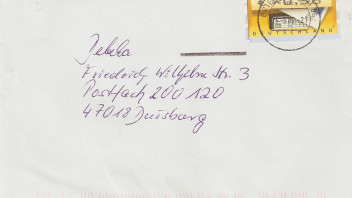 DEUTSCHLAND
Jeleka
Friedrich Wilhelm Str. 3
Postfach 200 120
47018 Duisburg